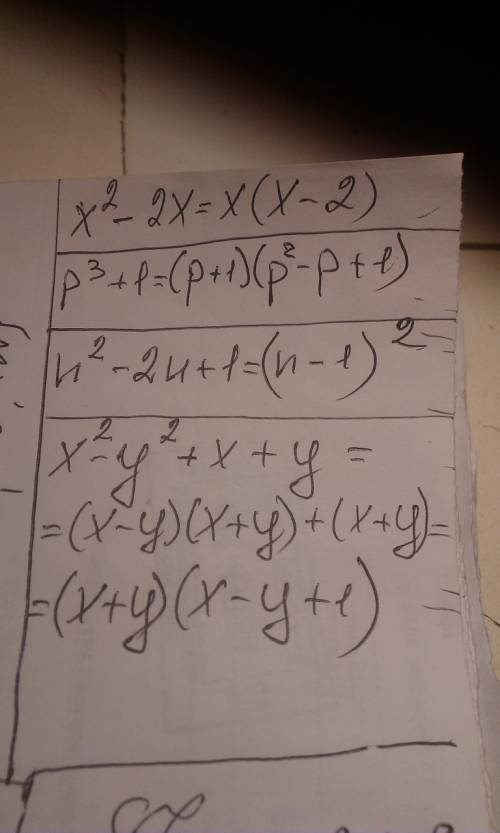 x² - 2x = x(x - 2)
p³ + 1 = (p + 1)(p² - p + 1)
n² - 2n + 1 = (n - 1)²
x² - y² + x + y =
= (x - y)(x + y) + (x + y) =
= (x + y)(x - y + 1)